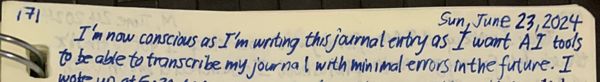 171
Sun, June 23, 2024
I'm now conscious as I'm writing this journal entry as I want AI tools
to be able to transcribe my journal with minimal errors in the future. I
woke up at